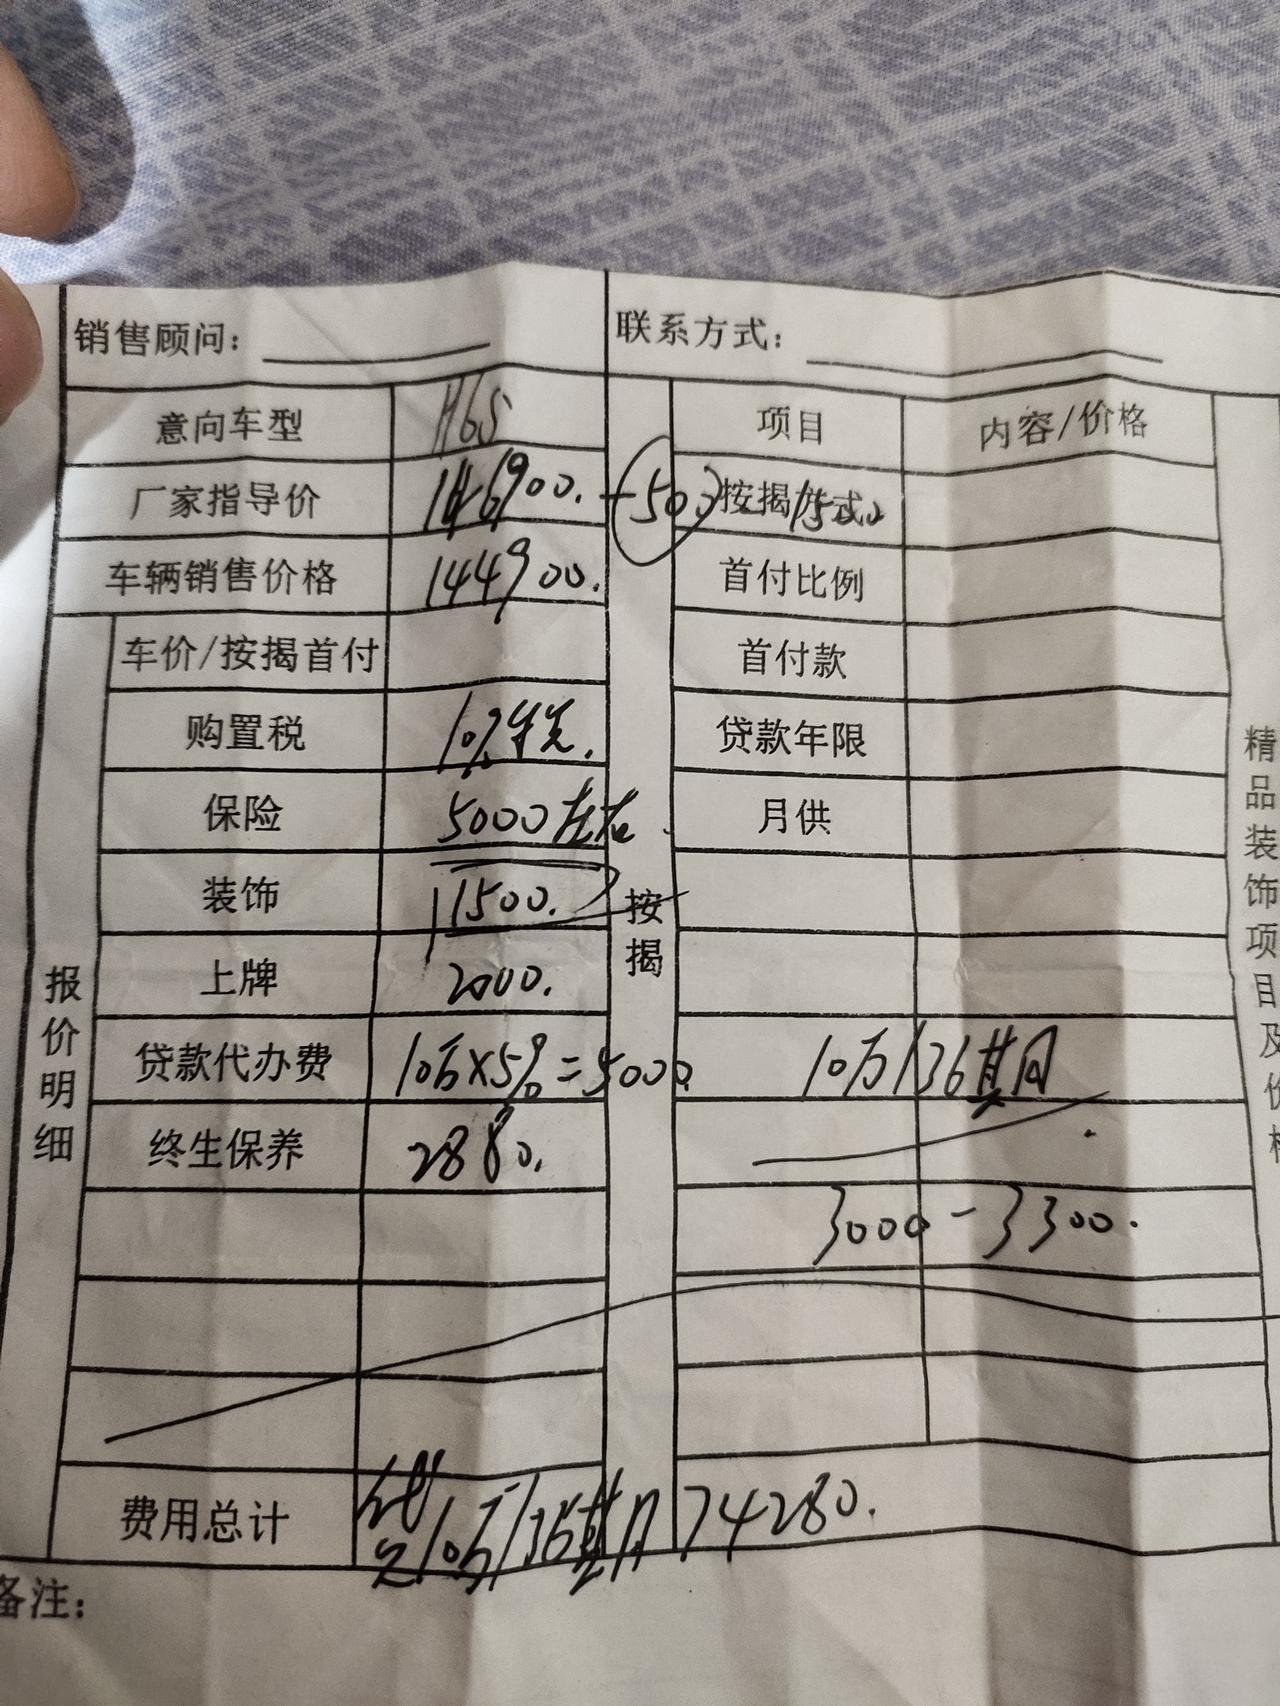 销售顾问：
联系方式：
意向车型 H6S
项目 内容/价格
厂家指导价 146900. -500
按揭
车辆销售价格 144900.
首付比例
车价/按揭首付
首付款
购置税 10%
贷款年限
保险 5000左右.
月供
装饰 11500.
按揭
上牌 2000.
贷款代办费 10万×5%=5000.
10万/36期
终生保养 2880.
3000-3300.
报价明细
精品装饰项目及价格
费用总计 贷 10万/36期 74280.
备注：